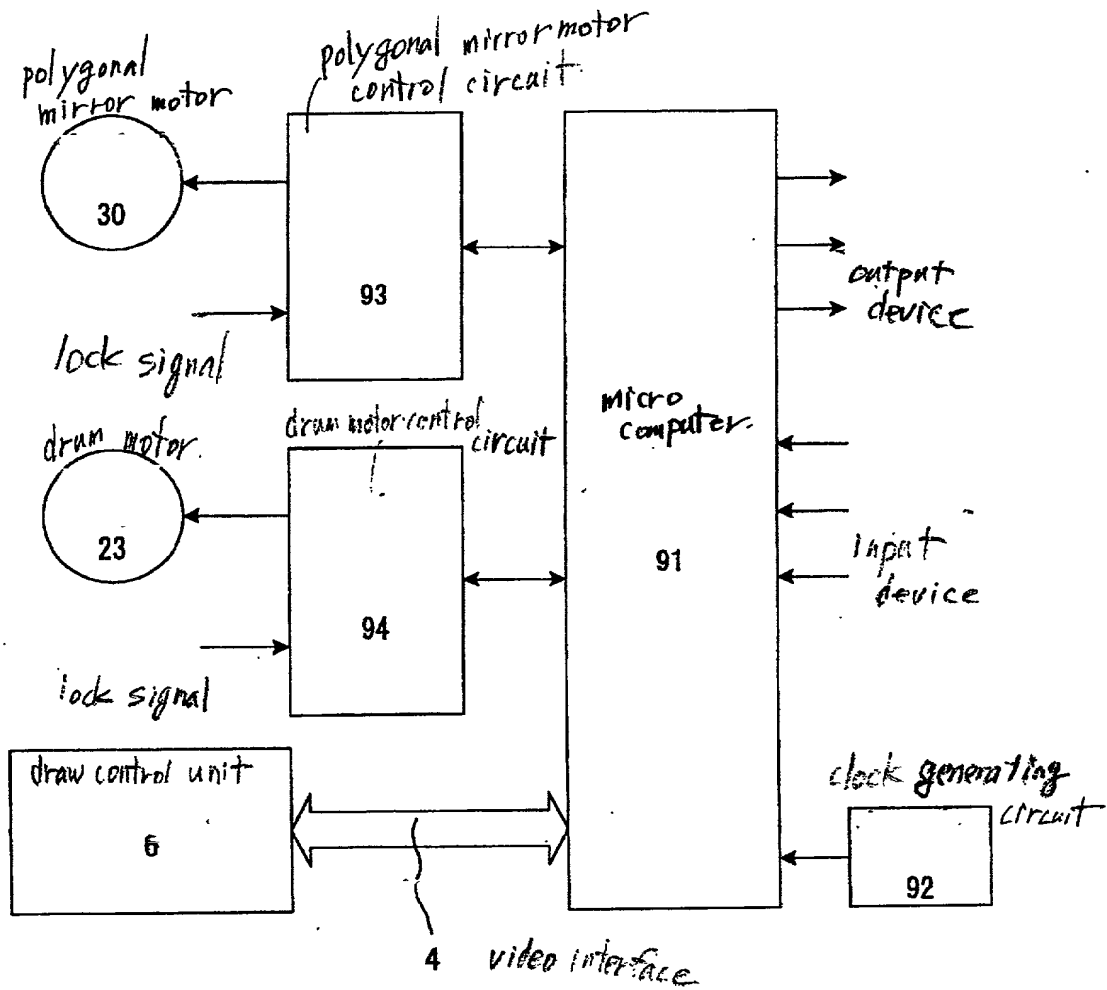 polygonal
mirror motor
30
polygonal mirror motor
control circuit
93
lock signal
drum motor.
23
drum motor control
circuit
94
lock signal
draw control unit
6
4 video interface
micro
computer.
91
output
device
input
device
clock generating
circuit
92